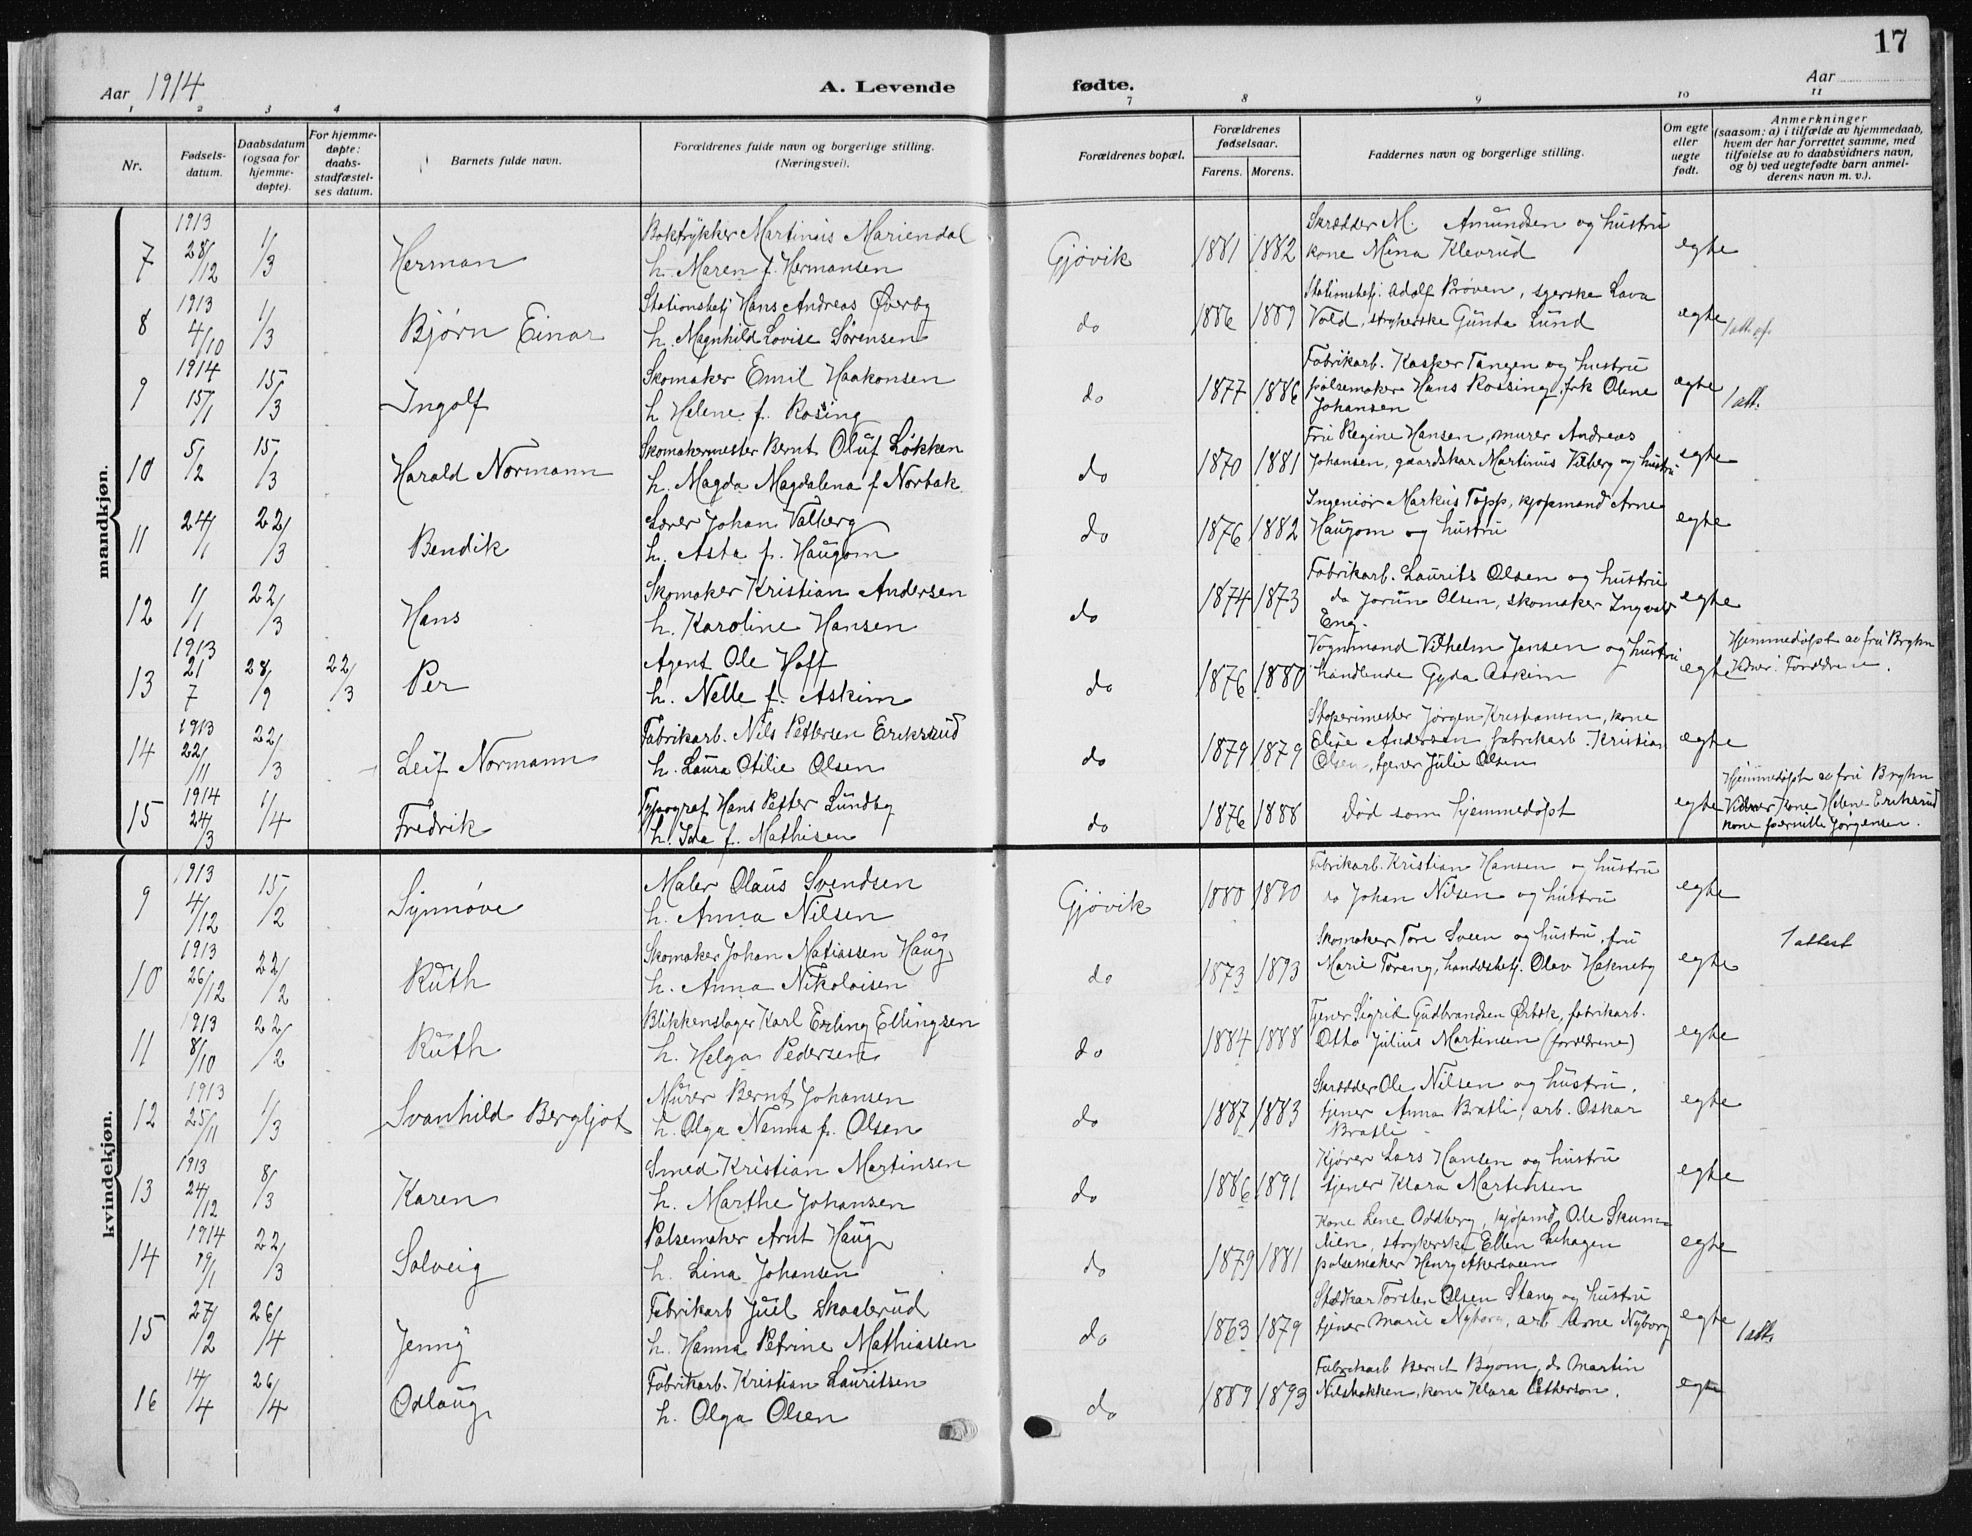 17
Aar 1914
A. Levende fødte.
Aar
1 2 3 4 7 8 9 10 11
Nr.
Fødsels-datum.
Daabsdatum (ogsaa for hjemme-døpte).
For hjemme-døpte: daabs-stadfæstel-ses datum.
Barnets fulde navn.
Forældrenes fulde navn og borgerlige stilling. (Næringsvei).
Forældrenes bopæl.
Forældrenes fødselsaar.
Farens. Morens.
Faddernes navn og borgerlige stilling.
Om egte eller uegte født.
Anmerkninger (saasom: a) i tilfælde av hjemmedaab, hvem der har forrettet samme, med tilføielse av to daabsvidners navn, og b) ved uegtefødte barn anmelderens navn m. v.).
mandkjøn.
7 1913 28/12 1/3 Herman Boktrykker Martinius Mariendal Gjøvik 1881 1882 Skrædder M. Amundsen og hustru egte
h. Maren f. Hermansen kone Mina Klevrud
8 1913 4/10 1/3 Bjørn Einar Stationsbetj Hans Andreas Øverby do 1886 1889 Stationsbetj. Adolf Prøven, syerske Lava egte
h. Magnhild Lovise Sørensen Vold, strykerske Gunda Lund
9 1914 15/1 15/3 Ingolf Skomaker Emil Haakonsen do 1877 1886 Fabrikarb. Kasper Tangen og hustru egte 1 att.
h. Helene f. Rosing pølsemaker Hans Rossing, frk Olene
Johansen
10 5/2 15/3 Harald Normann Skomakermester Bernt Oluf Løkken do 1870 1881 Fru Regine Hansen, murer Andreas egte
h. Magda Magdalena f Nortak Johansen, gaardskar Martinus Viberg og hustru
11 24/1 22/3 Bendik Lærer Johan Valberg do 1876 1882 Ingeniør Markus Topp, kjøpmand Arne egte
h. Asta f. Haugom Haugom og hustru
12 11/1 22/3 Hans Skomaker Kristian Andersen do 1874 1873 Fabrikarb. Laurits Olsen og hustru egte
h. Karoline Hansen do Jorun Olsen, skomaker Ingvald
Eng.
13 1913 21/7 28/9 22/3 Per Agent Ole Hoff do 1876 1880 Vognmand Vilhelm Jensen og hustru egte Hjemmedøpt av fru Bryhn
h. Nelle f. Askim handlende Gyda Askim Vidner: Forældrene.
14 1913 22/11 22/3 Leif Normann Fabrikarb. Nils Pettersen Eriksrud do 1879 1879 Støperimester Jørgen Kristiansen, kone egte
h. Laura Otilie Olsen Elise Andersen fabrikarb. Kristian
Olsen, tjener Julie Olsen
15 1914 24/3 1/4 Fredrik Typograf Hans Petter Lundby do 1876 1888 Død som hjemmedøpt egte Hjemmedøpt av fru Bryhn
h. Ida f. Mathisen Vidner kone Helene Eriksrud
kone Pernille Jørgensen.
kvindekjøn.
9 1913 4/12 15/2 Synnøve Maler Olaus Svendsen Gjøvik 1880 1890 Fabrikarb. Kristian Hansen og hustru egte
h. Anna Nilsen do Johan Nilsen og hustru
10 1913 26/12 22/2 Ruth Skomaker Johan Matiassen Haug do 1873 1893 Skomaker Tore Sveen og hustru, fru egte 1 attest
h. Anna Nikolaisen Marie Toreng, handelsbetj. Olav Hakneby
11 1913 8/10 22/2 Ruth Blikkenslager Karl Erling Ellingsen do 1884 1888 Tjener Sigrid Gudbrandsen Ørbæk, fabrikarb. egte
h. Helga Pedersen Otto Julius Martinsen (forældrene)
12 1913 25/11 1/3 Svanhild Bergljot Murer Bernt Johansen do 1887 1883 Skrædder Ole Nilsen og hustru, egte
h. Olga Nanna f. Olsen tjener Anna Bratli, arb. Oskar
Bratli
13 1913 24/12 8/3 Karen Smed Kristian Martinsen do 1886 1891 Kjører Lars Hansen og hustru egte
h. Marthe Johansen tjener Klara Martinsen
14 1914 19/1 22/3 Solveig Pølsemaker Arnt Haug do 1879 1881 Kone Lene Oddberg, kjøpmd Ole Skum- egte
h. Lina Johansen lien, strykerske Ellen Lehagen
pølsemaker Henry Akersveen
15 27/2 26/4 Jenny Fabrikarb Juel Skaalerud do 1863 1879 Staldkar Torsten Olsen Stang og hustru egte 1 att.
h. Hanna Petrine Mathiassen tjener Marie Nyborg, arb Arne Nyborg
16 14/4 26/4 Odlaug Fabrikarb. Kristian Lauritsen do 1889 1893 Fabrikarb Bernt Byom, do Martin egte
h. Olga Olsen Nilsbakken, kone Klara Petterson.